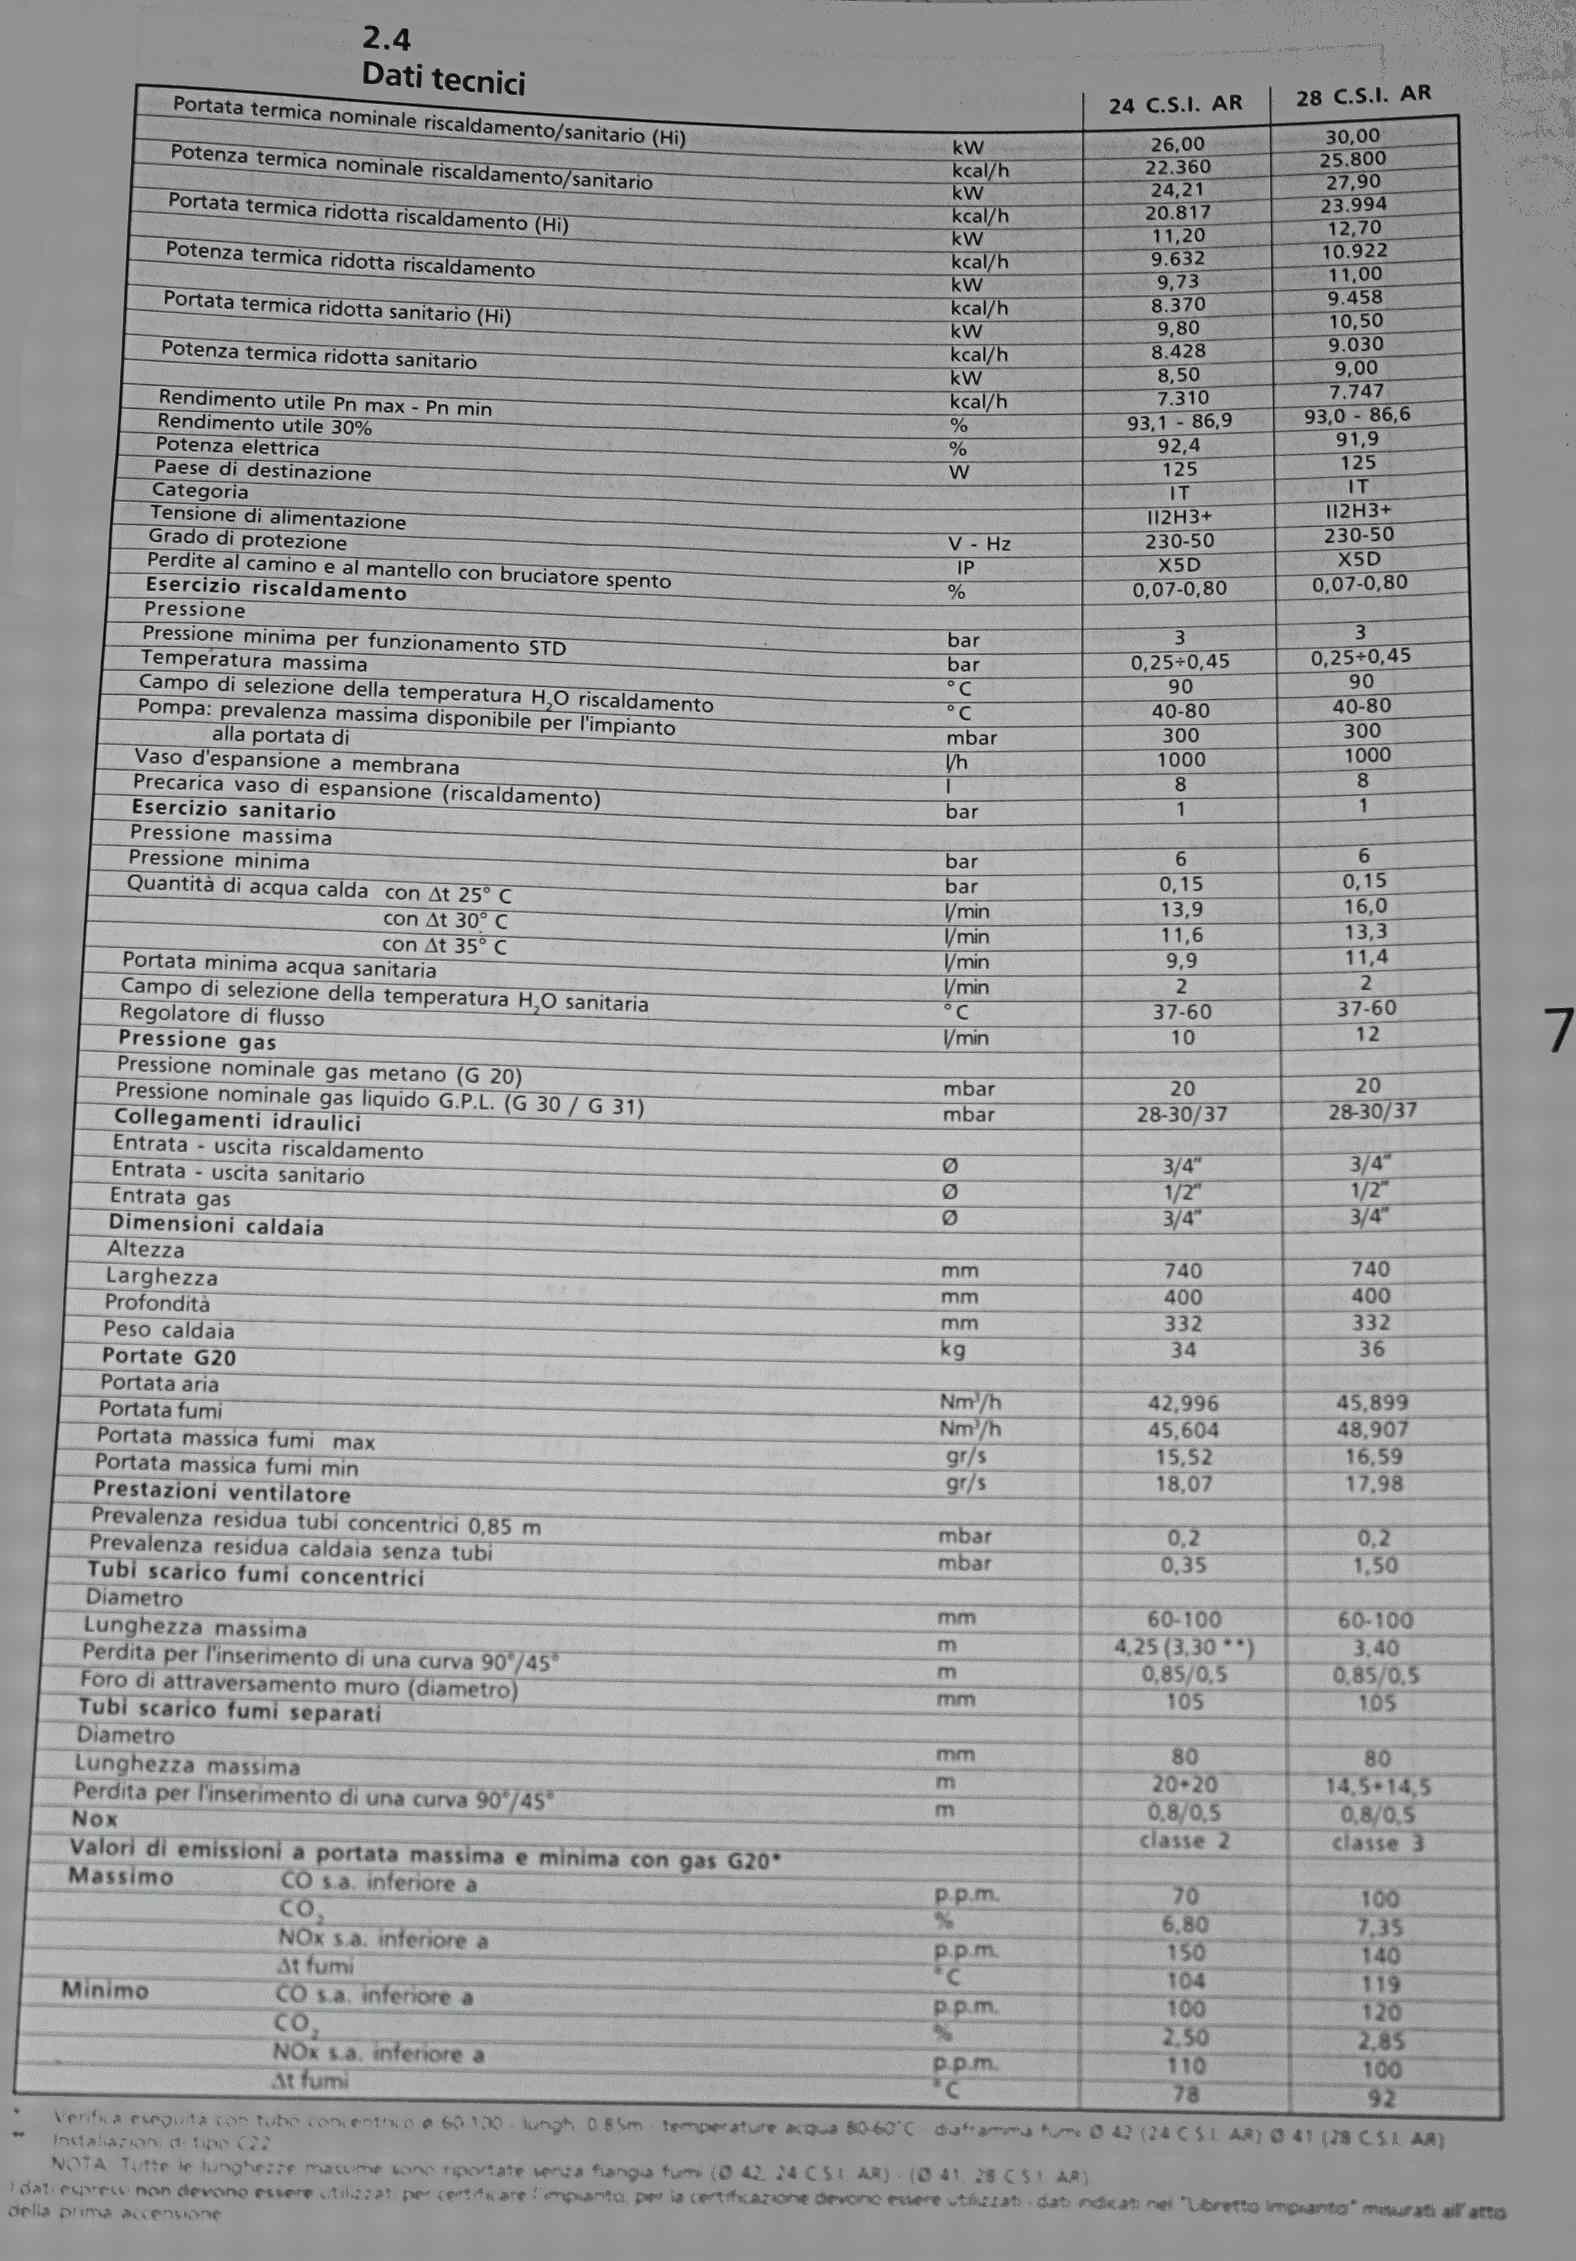 2.4
Dati tecnici
24 C.S.I. AR 28 C.S.I. AR
Portata termica nominale riscaldamento/sanitario (Hi) kW 26,00 30,00
kcal/h 22.360 25.800
Potenza termica nominale riscaldamento/sanitario kW 24,21 27,90
kcal/h 20.817 23.994
Portata termica ridotta riscaldamento (Hi) kW 11,20 12,70
kcal/h 9.632 10.922
Potenza termica ridotta riscaldamento kW 9,73 11,00
kcal/h 8.370 9.458
Portata termica ridotta sanitario (Hi) kW 9,80 10,50
kcal/h 8.428 9.030
Potenza termica ridotta sanitario kW 8,50 9,00
kcal/h 7.310 7.747
Rendimento utile Pn max - Pn min % 93,1 - 86,9 93,0 - 86,6
Rendimento utile 30% % 92,4 91,9
Potenza elettrica W 125 125
Paese di destinazione IT IT
Categoria II2H3+ II2H3+
Tensione di alimentazione V - Hz 230-50 230-50
Grado di protezione IP X5D X5D
Perdite al camino e al mantello con bruciatore spento % 0,07-0,80 0,07-0,80
Esercizio riscaldamento
Pressione bar 3 3
Pressione minima per funzionamento STD bar 0,25÷0,45 0,25÷0,45
Temperatura massima °C 90 90
Campo di selezione della temperatura H₂O riscaldamento °C 40-80 40-80
Pompa: prevalenza massima disponibile per l'impianto mbar 300 300
alla portata di l/h 1000 1000
Vaso d'espansione a membrana l 8 8
Precarica vaso di espansione (riscaldamento) bar 1 1
Esercizio sanitario
Pressione massima bar 6 6
Pressione minima bar 0,15 0,15
Quantità di acqua calda con Δt 25° C l/min 13,9 16,0
con Δt 30° C l/min 11,6 13,3
con Δt 35° C l/min 9,9 11,4
Portata minima acqua sanitaria l/min 2 2
Campo di selezione della temperatura H₂O sanitaria °C 37-60 37-60
Regolatore di flusso l/min 10 12
7
Pressione gas
Pressione nominale gas metano (G 20) mbar 20 20
Pressione nominale gas liquido G.P.L. (G 30 / G 31) mbar 28-30/37 28-30/37
Collegamenti idraulici
Entrata - uscita riscaldamento Ø 3/4" 3/4"
Entrata - uscita sanitario Ø 1/2" 1/2"
Entrata gas Ø 3/4" 3/4"
Dimensioni caldaia
Altezza mm 740 740
Larghezza mm 400 400
Profondità mm 332 332
Peso caldaia kg 34 36
Portate G20
Portata aria Nm³/h 42,996 45,899
Portata fumi Nm³/h 45,604 48,907
Portata massica fumi max gr/s 15,52 16,59
Portata massica fumi min gr/s 18,07 17,98
Prestazioni ventilatore
Prevalenza residua tubi concentrici 0,85 m mbar 0,2 0,2
Prevalenza residua caldaia senza tubi mbar 0,35 1,50
Tubi scarico fumi concentrici
Diametro mm 60-100 60-100
Lunghezza massima m 4,25 (3,30 **) 3,40
Perdita per l'inserimento di una curva 90°/45° m 0,85/0,5 0,85/0,5
Foro di attraversamento muro (diametro) mm 105 105
Tubi scarico fumi separati
Diametro mm 80 80
Lunghezza massima m 20+20 14,5+14,5
Perdita per l'inserimento di una curva 90°/45° m 0,8/0,5 0,8/0,5
Nox classe 2 classe 3
Valori di emissioni a portata massima e minima con gas G20*
Massimo CO s.a. inferiore a p.p.m. 70 100
CO₂ % 6,80 7,35
NOx s.a. inferiore a p.p.m. 150 140
Δt fumi °C 104 119
Minimo CO s.a. inferiore a p.p.m. 100 120
CO₂ % 2,50 2,85
NOx s.a. inferiore a p.p.m. 110 100
Δt fumi °C 78 92
* Verifica eseguita con tubo concentrico ø 60-100 - lungh. 0,85m - temperature acqua 80-60°C - diaframma fumi Ø 42 (24 C.S.I. AR) Ø 41 (28 C.S.I. AR)
** Installazioni di tipo C22
NOTA: Tutte le lunghezze massime sono riportate senza flangia fumi (Ø 42, 24 C.S.I. AR) - (Ø 41, 28 C.S.I. AR)
I dati espressi non devono essere utilizzati per certificare l'impianto; per la certificazione devono essere utilizzati i dati indicati nel "Libretto Impianto" misurati all'atto
della prima accensione